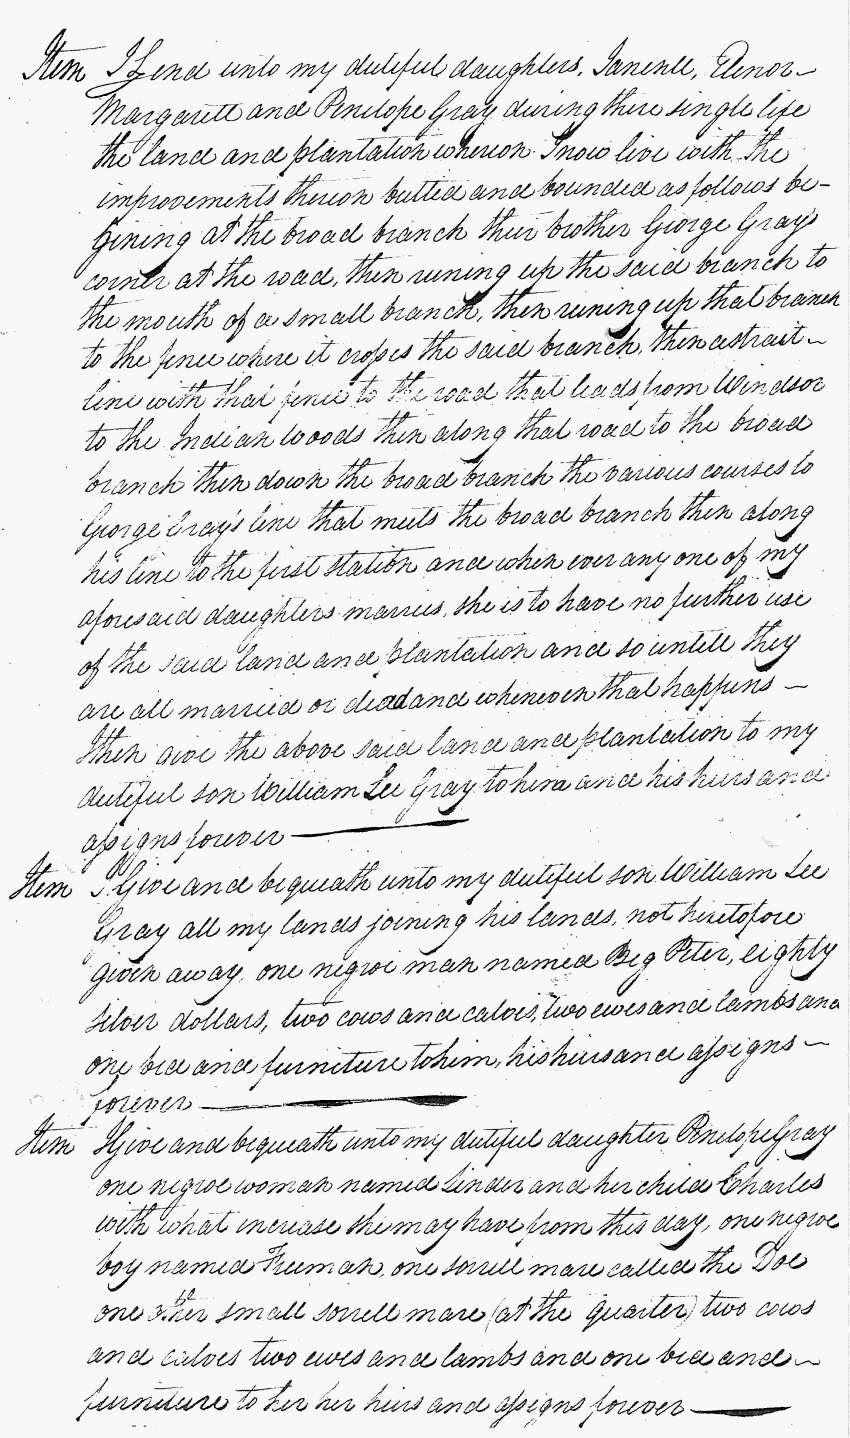 Item I Lend unto my dutiful daughters, Janenll, Elenor
Margarett and Penelope Gray during there single life
the land and plantation whereon I now live with the
improvements thereon butted and bounded as follows be-
gining at the broad branch their brother George Gray's
corner at the road, then runing up the said branch to
the mouth of a small branch, then runing up that branch
to the fence where it crosses the said branch, then a strait
line with that fence to the road that leads from Windsor
to the Indian Woods then along that road to the broad
branch then down the broad branch the various courses to
George Gray's line that meets the broad branch then along
his line to the first station and when ever any one of my
aforesaid daughters marries, she is to have no further use
of the said land and plantation and so untell they
are all married or dead and whenever that happens
I then give the above said land and plantation to my
dutiful son William Lee Gray to him and his heirs and
assigns forever
Item I Give and bequeath unto my dutiful son William Lee
Gray all my lands joining his lands, not heretofore
given away, one negroe man named Beg Peter, eighty
silver dollars, two cows and calves, two ewes and lambs and
one bed and furniture to him, his heirs and assigns
forever
Item I Give and bequeath unto my dutiful daughter Penelope Gray
one negroe woman named Linder and her child Charles
with what increase she may have from this day, one negroe
boy named Freeman, one sorrell mare called the Doe
one other small sorrell mare (at the quarter) two cows
and calves two ewes and lambs and one bed and
furniture to her her heirs and assigns forever